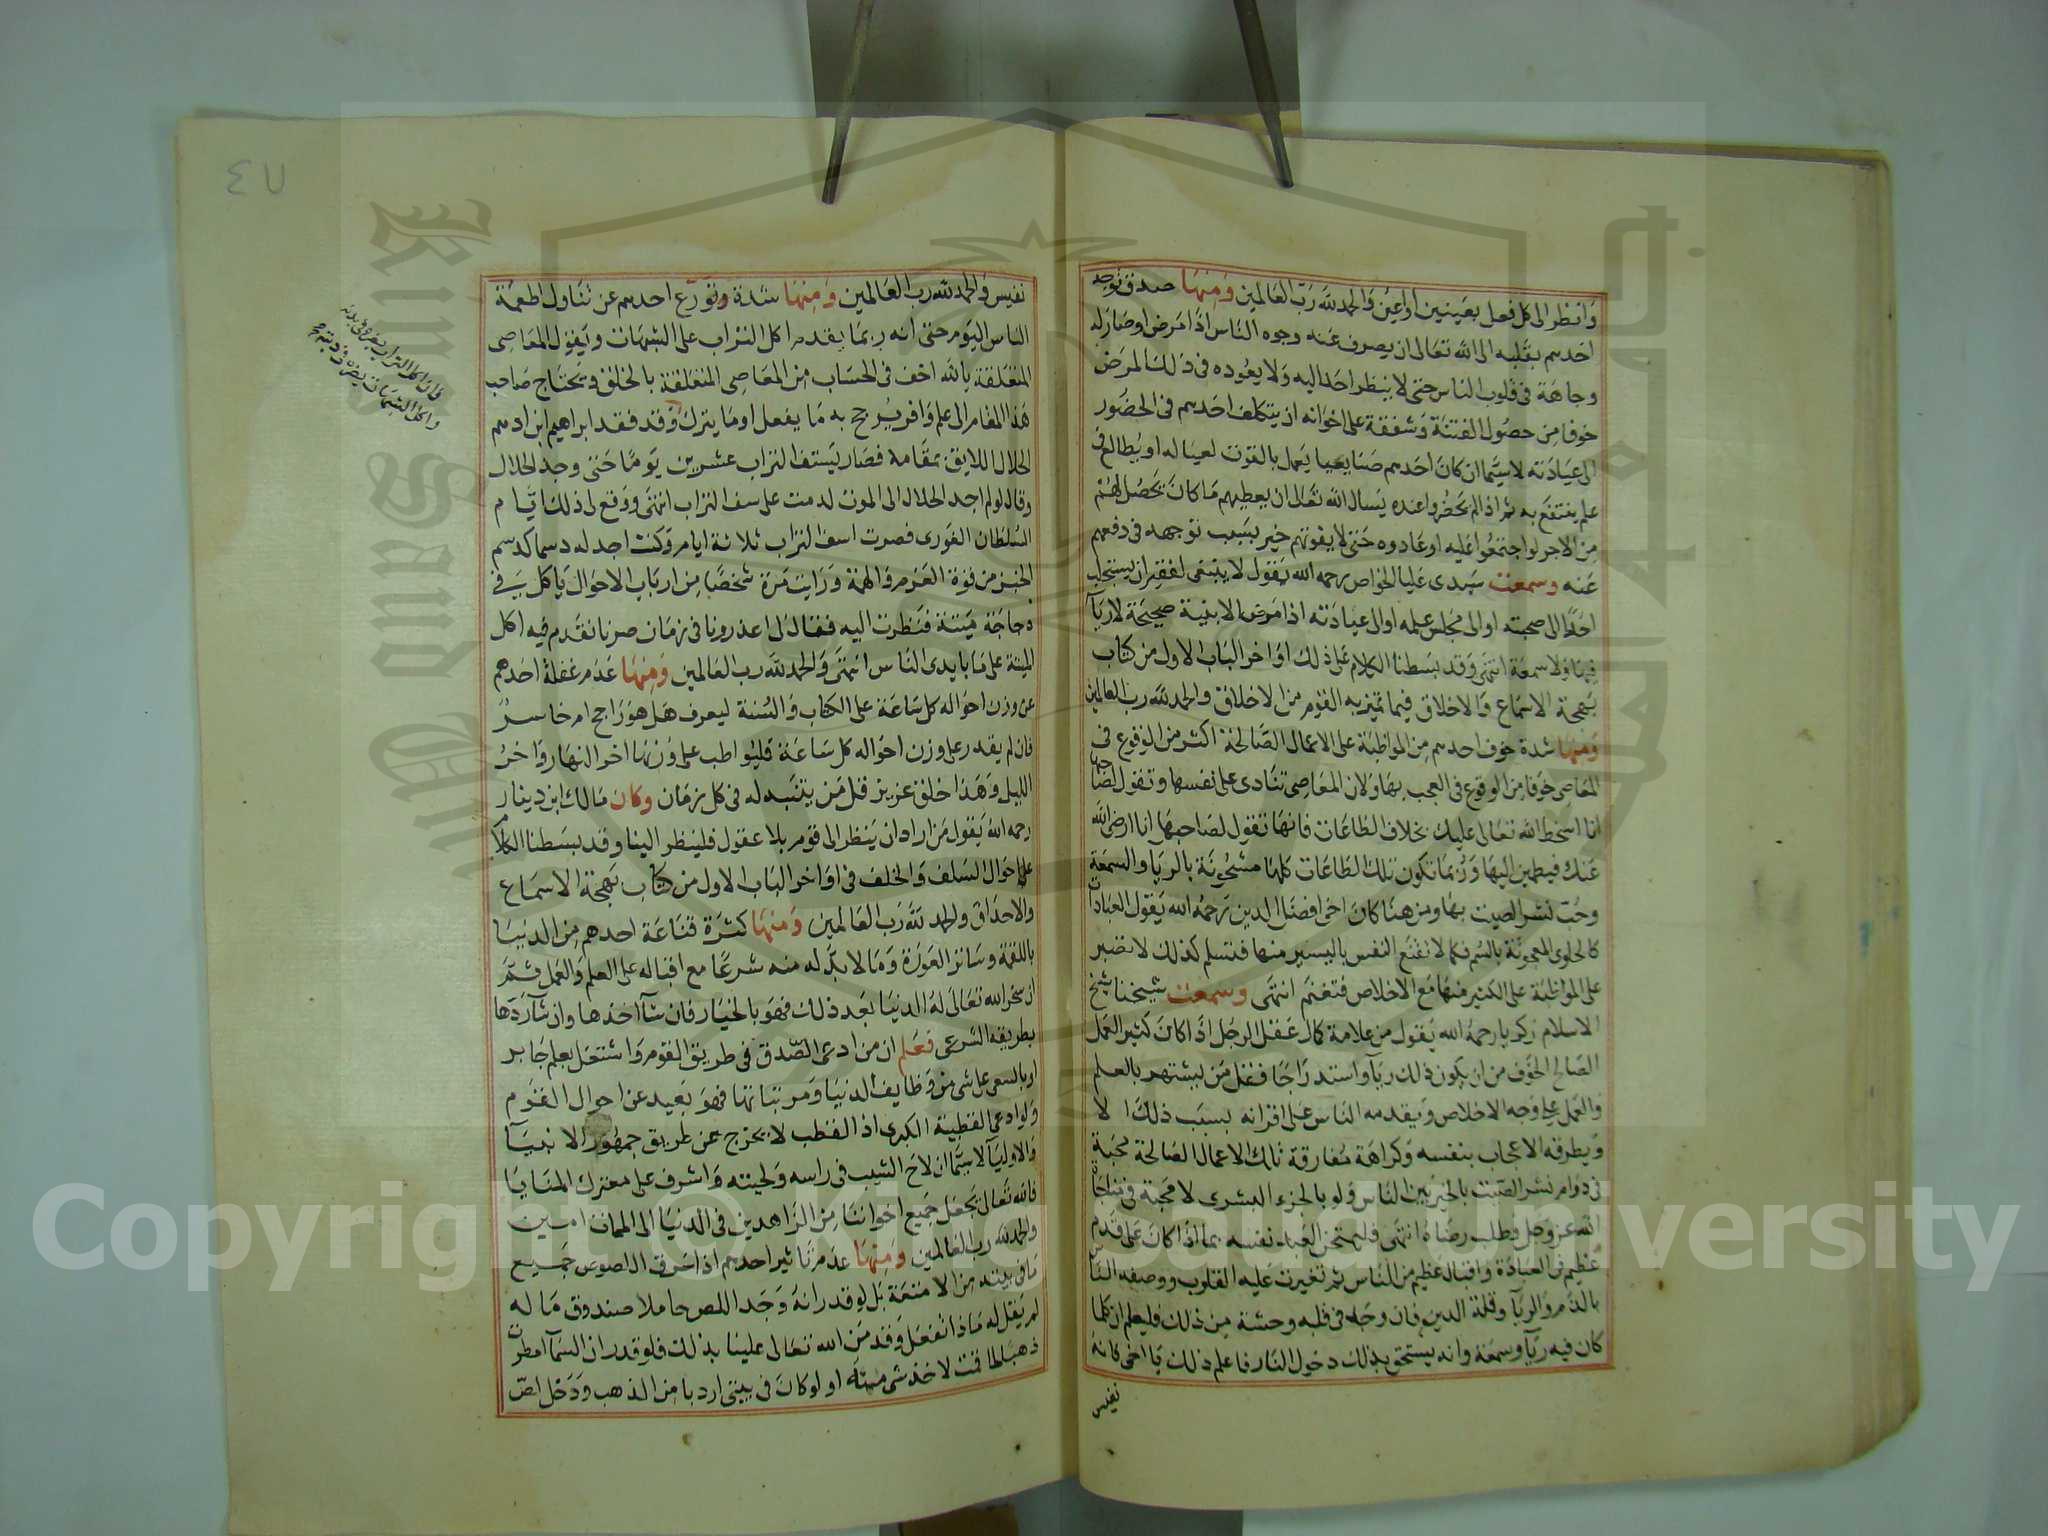 وانظر الى كل فعل بعينين او اعين والحمد لله رب العالمين ومنها صدق توجه
احدهم بقلبه الى الله تعالى ان يصرف عنه وجوه الناس اذا مرض او صار له
وجاهة في قلوب الناس حتى لا ينظر احد اليه ولا يعوده في ذلك المرض
خوفا من حصول الفتنة وشفقة على اخوانه ان يتكلف احدهم في الحضور
الى عيادته لاسيما ان كان احدهم صنايعيا يعمل بالقوت لعياله او يطالع في
علم ينتفع به ثم اذا لم يحضروا عنده يسال الله تعالى ان يعطيهم ما كان يحصل لهم
من الاجر لو اجتمعوا عليه او عادوه حتى لا يفوتهم خير بسبب توجهه في دفعهم
عنه وسمعت سيدى عليا الخواص رحمه الله يقول لا ينبغى لفقير ان يستجلب
احدا الى صحبته او الى مجلس علمه او الى عيادته اذا مرض الا بنية صحيحة لا ريآ
فيها ولا سمعة انتهى وقد بسطنا الكلام على ذلك اواخر الباب الاول من كتاب
بهجة الاسماع والاخلاق فيما تميز به القوم من الاخلاق والحمد لله رب العالمين
ومنها شدة خوف احدهم من المواظبة على الاعمال الصالحة اكثر من الوقوع في
المعاصى خوفا من الوقوع في العجب بها ولان المعاصى تنادى على نفسها وتقول لصاحبها
انا اسخط الله تعالى عليك بخلاف الطاعات فانها تقول لصاحبها انا ارضى الله
عنك فيطمين اليها وربما تكون تلك الطاعات كلها مشحونة بالريا والسمعة
وحب نشر الصيت بها ومن هنا كان اخى افضل الدين رحمه الله يقول العبادات
كالحلوى المعجونة بالسم فكما لا تقنع النفس باليسير منها فتسلم كذلك لا تصبر
على المواظبة على الكثير منها مع الاخلاص فتغنم انتهى وسمعت شيخنا شيخ
الاسلام زكريا رحمه الله يقول من علامة كمال عقل الرجل اذا كان كثير العمل
الصالح الخوف من ان يكون ذلك ريآ واستدراجا فقل من يشتهر بالعلم
والعمل على وجه الاخلاص ويقدمه الناس على اقرانه بسبب ذلك الا
ويطرقه الاعجاب بنفسه وكراهة مفارقة تلك الاعمال الصالحة محبة
في دوام نشر الصيت بالخير بين الناس ولو بالجزء البشرى لا محبة في مناجاة
الله عز وجل وطلب رضاه انتهى فليمتحن العبد نفسه بما اذا كان على قدم
عظيم في العبادة واقبال عظيم من الناس ثم تغيرت عليه القلوب ووصفه الناس
بالذم والريآ وقلة الدين فان وجد في قلبه وحشة من ذلك فليعلم ان كلما
كان فيه ريآ وسمعة وانه يستحق بذلك دخول النار فاعلم ذلك يا اخى فانه
نفيس
٤٧
نفيس والحمد لله رب العالمين ومنها شدة وتورع احدهم عن تناول اطعمة
الناس اليوم حتى انه ربما يقدم اكل التراب على الشبهات ويقول المعاصى
المتعلقة بالله اخف في الحساب من المعاصى المتعلقة بالخلق ويحتاج صاحب
هذا المقام الى علم وافر يرجح به ما يفعل او ما يترك وقد فقد ابراهيم ابن ادهم
الحلال اللايق بمقامه فصار يستف التراب عشرين يوما حتى وجد الحلال
وقال لو لم اجد الحلال الى الموت لدمت على سف التراب انتهى ووقع لى ذلك ايام
السلطان الغورى فصرت اسف التراب ثلاثة ايام وكنت اجد له دسما كدسم
الخبز من قوة العزم والهمة ورايت مرة شخصا من ارباب الاحوال ياكل في
دجاجة ميتة فنظرت اليه فقال لى اعذرونا في زمان صرنا نقدم فيه اكل
الميتة على ما بايدى الناس انتهى والحمد لله رب العالمين ومنها عدم غفلة احدهم
عن وزن احواله كل ساعة على الكتاب والسنة ليعرف هل هو راجح ام خاسر
فان لم يقدر على وزن احواله كل ساعة فليواظب على وزنها اخر النهار واخر
الليل وهذا خلق عزيز قل من يتنبه له في كل زمان وكان مالك ابن دينار
رحمه الله يقول من اراد ان ينظر الى قوم بلا عقول فلينظر الينا وقد بسطنا الكلام
على احوال السلف والخلف في اواخر الباب الاول من كتاب بهجة الاسماع
والاحداق والحمد لله رب العالمين ومنها كثرة قناعة احدهم من الدنيا
باللقمة وساتر العورة وما لابد له منه شرعا مع اقباله على العلم والعمل ثم
ان سخر الله تعالى له الدنيا بعد ذلك فهو بالخيار فان شآ اخذها وان شآ ردها
بطريقه الشرعى فعلم ان من ادعى الصدق في طريق القوم واشتغل بعلم جابر
او بالسعى على شى من وظايف الدنيا ومرتباتها فهو بعيد عن احوال القوم
ولو ادعى القطبية الكبرى اذ القطب لا يخرج عن طريق جمهور الانبيآ
والاوليآ لاسيما ان لاح الشيب في راسه ولحيته واشرف على معترك المنايا
فالله تعالى يجعل جميع اخواننا من الزاهدين في الدنيا الى الممات امين
والحمد لله رب العالمين ومنها عدم تاثير احدهم اذا سرق اللصوص جميع
ما في بيته من الامتعة بل لو قدر انه وجد اللص حاملا صندوق ماله
لم يقل له ماذا تفعل وقد من الله تعالى علينا بذلك فلو قدر ان السمآ امطرت
ذهبا لما قمت لاخذ شى منه او لو كان في بيتى اردبا من الذهب ودخل لص
فان اكل التراب يضر في بدنه
واكل الشبهات يضره في دينه
Copyright © King Saud University
King Saud University